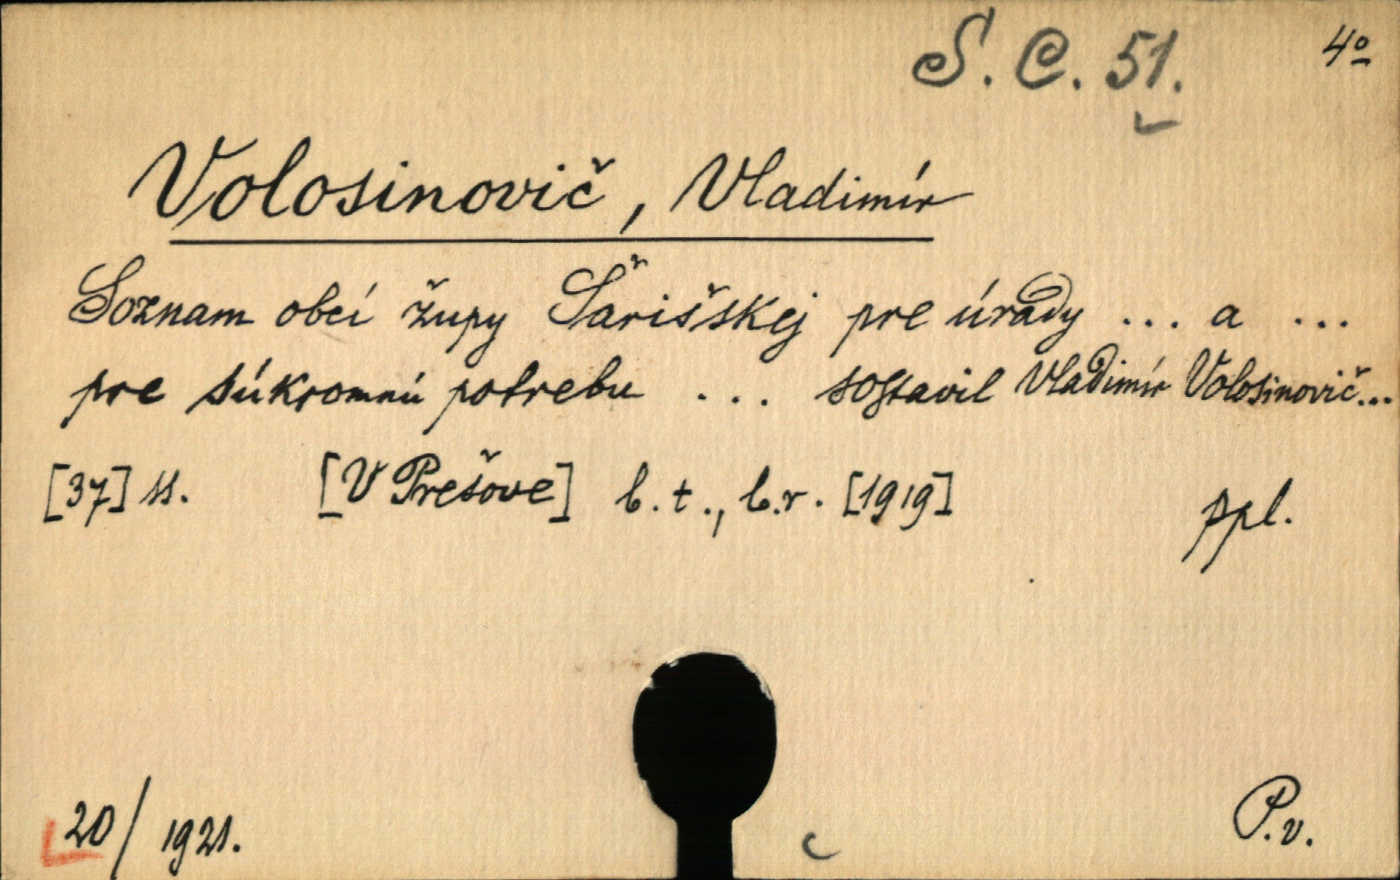 S. C. 51.
4º
Volosinovič, Vladimír
Soznam obcí župy Šarišskej pre úrady ... a ...
pre súkromnú potrebu ... sostavil Vladimír Volosinovič...
[37] ss. [V Prešove] b. t., b. r. [1919] ppl.
20/1921.
P. v.